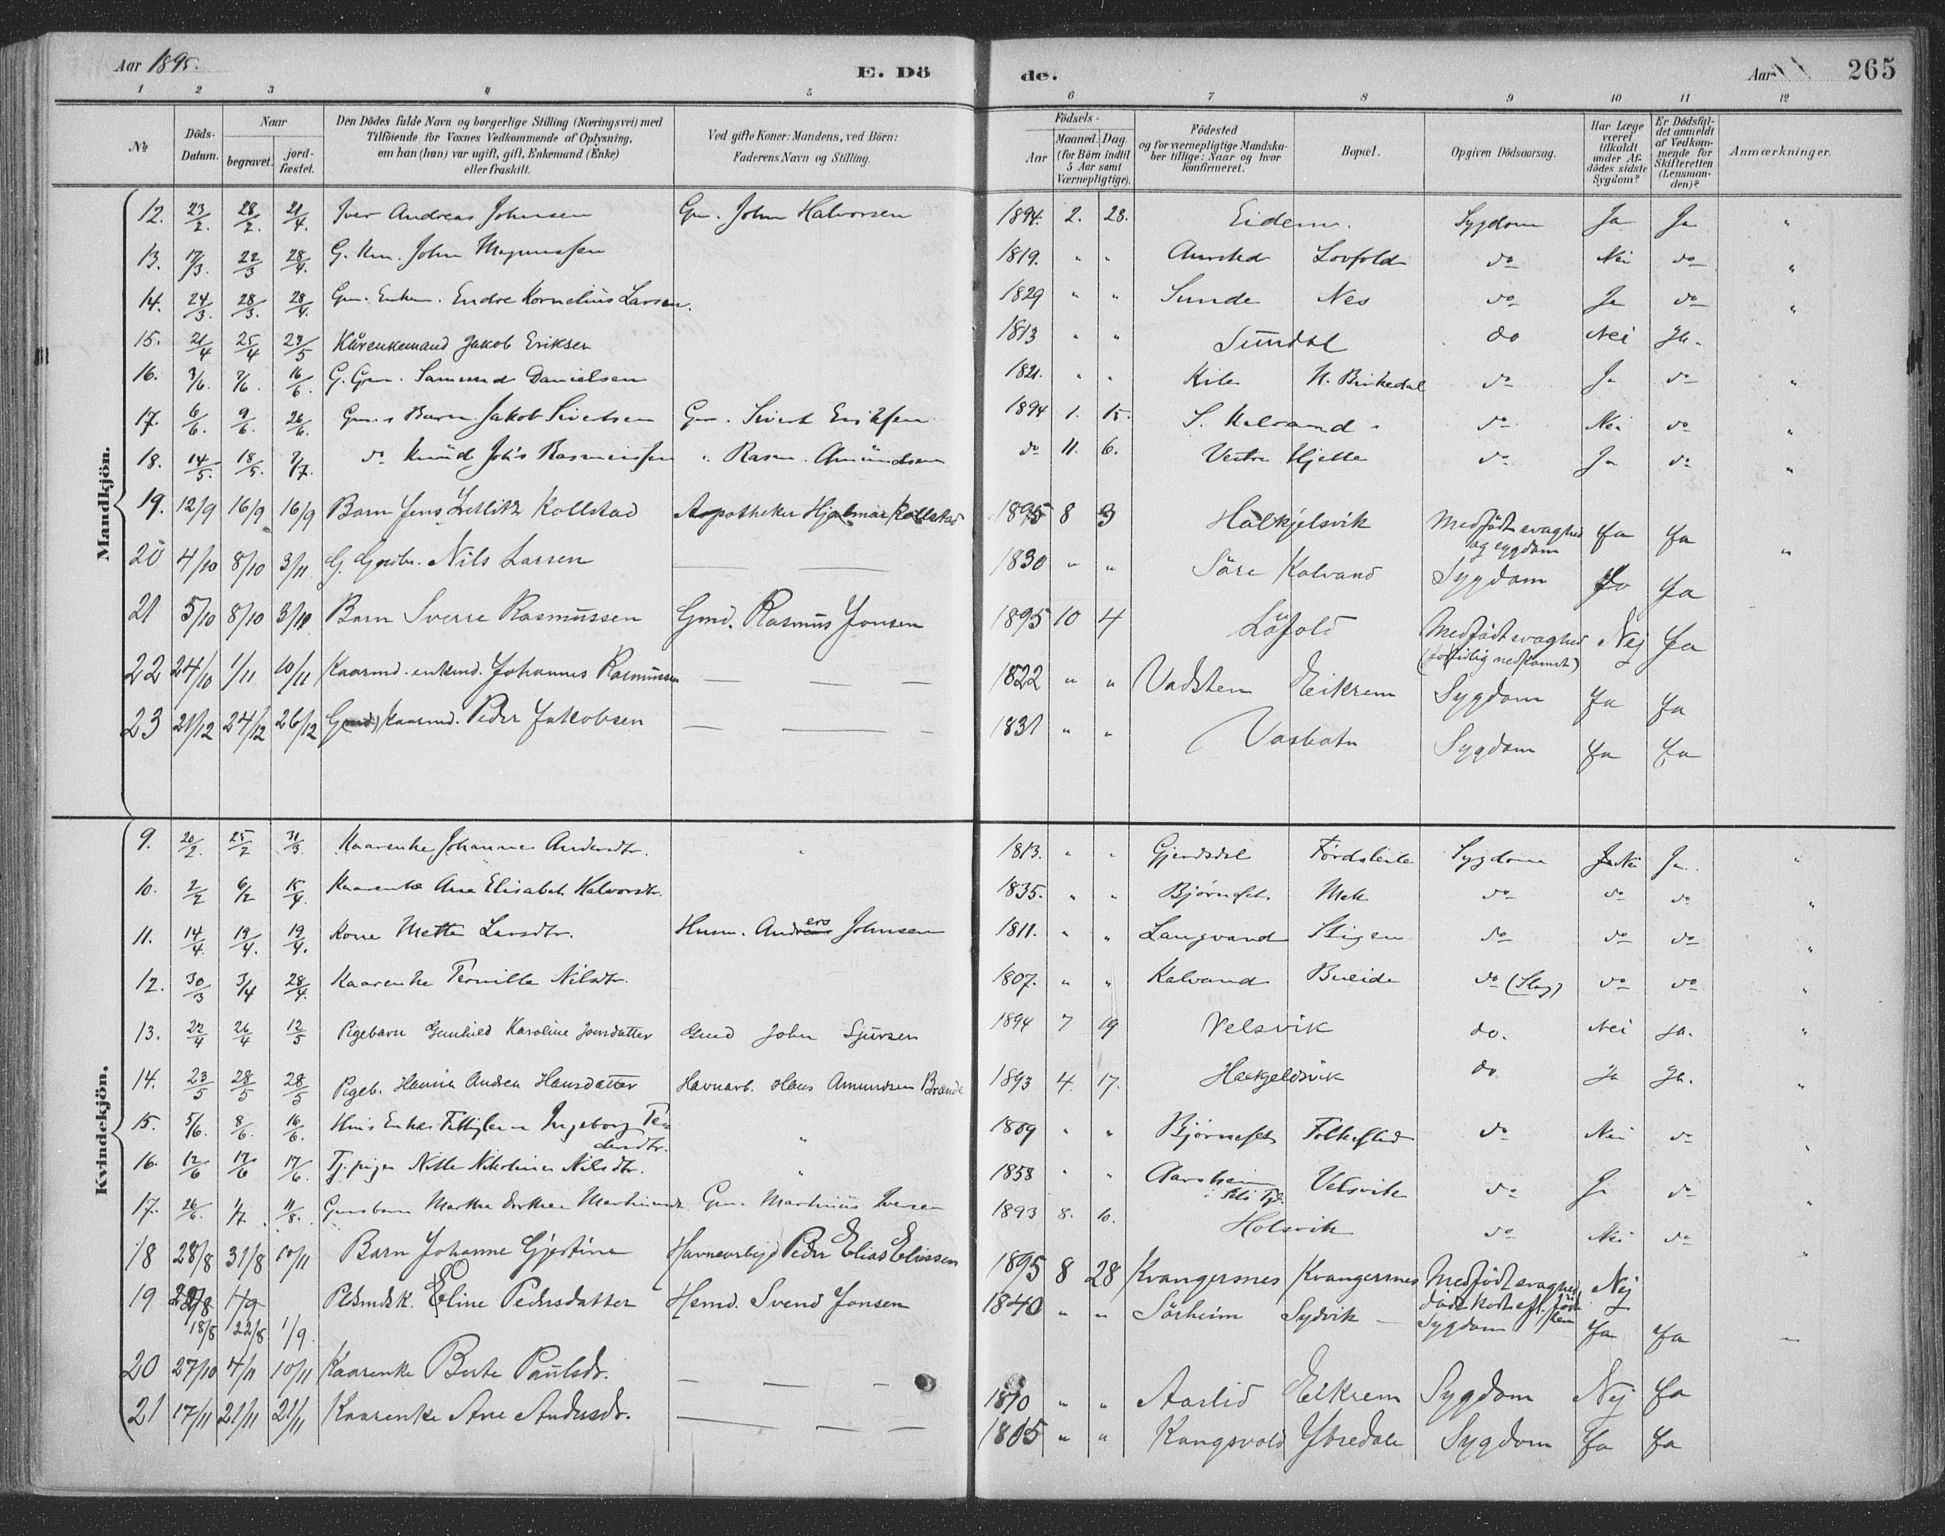 Aar 1895.
E. Dö de.
Aar
265
1 2 3 4 5 6 7 8 9 10 11 12
No
Döds-Datum.
Naar
begravet.
jord-fæstet.
Den Dödes fulde Navn og borgerlige Stilling (Næringsvei) med
Tilföiende for Voxnes Vedkommende af Oplysning,
om han (hun) var ugift, gift, Enkemand (Enke)
eller fraskilt.
Ved gifte Koner: Mandens, ved Börn:
Faderens Navn og Stilling.
Födsels-
Aar
Maaned. Dag
(for Börn indtil
5 Aar samt
Værnepligtige).
Födested
og for værnepligtige Mandska-
ber tillige: Naar og hvor
konfirmeret.
Bopæl.
Opgiven Dödsaarsag.
Har Læge
været
tilkaldt
under Af-
dödes sidste
Sygdom?
Er Dödsfal-
det anmeldt
af Vedkom-
mende for
Skifteretten
(Lensman-
den)?
Anmærkninger.
Mandkjön.
12. 23/2. 28/2. 21/4 Iver Andreas Johnsen Gm. John Halvorsen 1894. 2. 28. Eidem. Sygdom Ja Ja "
13. 17/3. 22/3 28/4. G. Km. John Magnussen 1819. " " Aursted Lovfold do Nei do "
14. 24/3. 28/3. 28/4. Gm. Enkem. Endre Kornelius Larsen. 1829 " " Sunde Nes do Ja do "
15. 21/4 25/4 23/5 Kårenkemand Jakob Eriksen 1813 " " Sundal do Nei Ja.
16. 3/6. 7/6. 16/6. G. Gm. Samund Danielsen 1821. " " Kile N. Birkedal do Ja do "
17. 6/6. 9/6. 26/6. Gm.s Barn Jakob Sivertsen Gm. Sivert Eriksen 1894 1. 15. S. Kalvand. do Nei do "
18. 14/5. 18/5. 7/7. do Knud Johs Rasmussen " Rasm. Amundsen do 11. 6. Vestre Hjelle do Ja do "
19. 12/9 16/9 16/9 Barn Jens Kollstad Apotheker Hjalmar Kollstad 1895 8 3 Halkjelsvik Medfødt svaghed og sygdom Ja Ja
20 4/10 8/10 3/11 G. Gmdbr. Nils Larsen — 1830 " " Søre Kalvand Sygdom Ja Ja "
21 5/10 8/10 3/11 Barn Sverre Rasmussen Gmd. Rasmus Jonsen 1895 10 4 Løfold Medfødt svaghed (fortidlig nedkomst) Nej Ja
22 24/10 1/11 10/11 Kaarmd. enkmd. Johannes Rasmussen — — — 1822 " " Vadsten Eikrem Sygdom Ja Ja
23 21/12 24/12 26/12 G(md) kaarmd. Peder Jakobsen — — — 1831 " " Vasbotn Sygdom Ja Ja
Kvindekjön.
9. 20/2. 25/2 31/3 Kaarenke Johanne Andersdtr. " 1813. " " Gjerdsdal Førdsleite Sygdom Nei Ja. "
10. 2/2 6/2 15/4. Kaarenke Ane Elisabet Halvorsdtr. 1835. " " Bjørneset. Mek do do do "
11. 14/4. 19/4. 19/4. Kone Mette Larsdtr. Husm. Anders Johnsen 1811. " " Langvand Stigen do do do "
12. 30/3 3/4 28/4. Kaarenke Pernille Nilsdtr. 1807. " " Kalvand Bueide do (Slag) do do "
13. 22/4 26/4 12/5 Pigebarn Gunhild Karoline Jonsdatter Gmd John Sjursen 1894 7 19 Velsvik do. Nei Ja. "
14. 23/5 28/5 28/5 Pigeb. Hanna Andrea Hansdatter Havnarb. Hans Amundsen Brande 1893 4. 17. Halkjeldsvik do Ja Ja. "
15. 5/6. 8/6. 16/6. Hus Enke Fattiglem Ingeborg Pedersdtr. " 1809 " " Bjørneset Folkestad do Nei do
16. 12/6 17/6 17/6. Tj. pige Nille Nikoline Nilsdtr. " 1858 " " Aarsheim Velsvik do Ja do "
17. 26/6. 1/7. 11/8. Gmsbarn Martha Dorthea Gm. Martinus Iversen 1893 8. 10. Holsvik do Nei do "
18 28/8 31/8 10/11 Barn Johanne Gjertine Havnearbejd Peder Elias Eliassen 1895 8 28 Kvangersnes Kvangersnes Medfødt svaghed døde kort eft. fødselen Nej
19 18/8 22/8 1/9. Eline Pedersdatter Hsmd. Svend Jonsen 1840 " " Sørheim Sydvik — Sygdom Ja Ja —
20 27/10 4/11 10/11 Kaarenke Berte Paulsdr. — — — 1810 " " Aaslid Eikrem Sygdom Nej Ja
21 17/11 21/11 21/11 Kaarenke Ane Andersdr. — — — 1805 " " Kongsvold Ytredale Sygdom Ja Ja